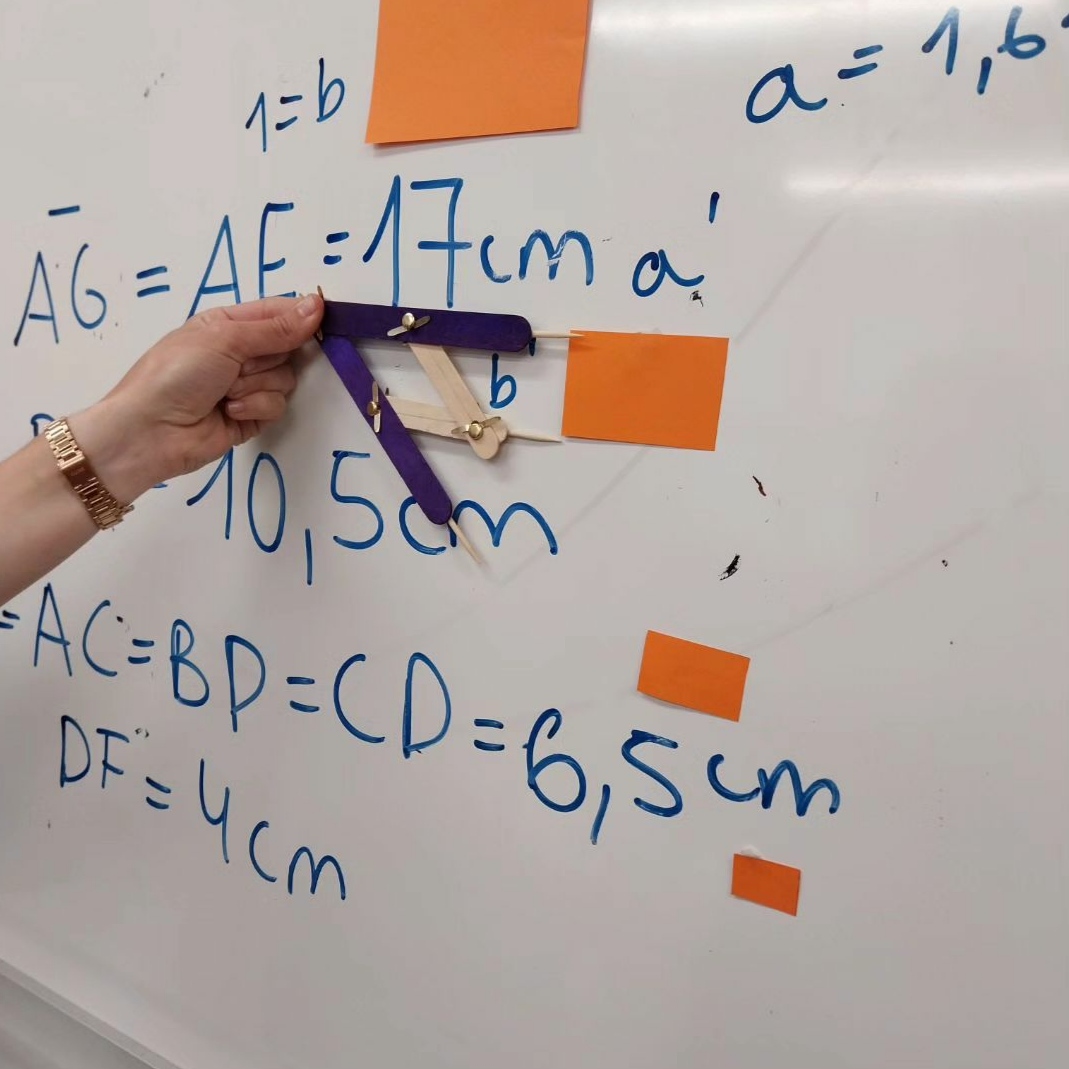 1=b
a = 1,6
AG = AE = 17cm a'
b
10,5cm
=AC=BD=CD=6,5cm
DF=4cm